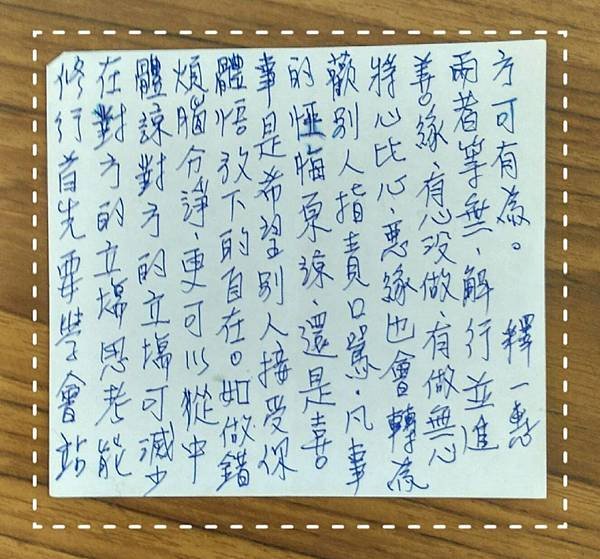 修行首先要學會站
在對方的立場思考能
體諒對方的立場可減少
煩腦分諍更可以從中
體悟放下的自在。如做錯
事是希望別人接受你
的悔原諒、還是喜
歡別人指責口罵、凡事
將心比心、惡緣也會轉為
善緣、有心沒做、有做無心
兩者等無、解行並進
方可有為。 釋一